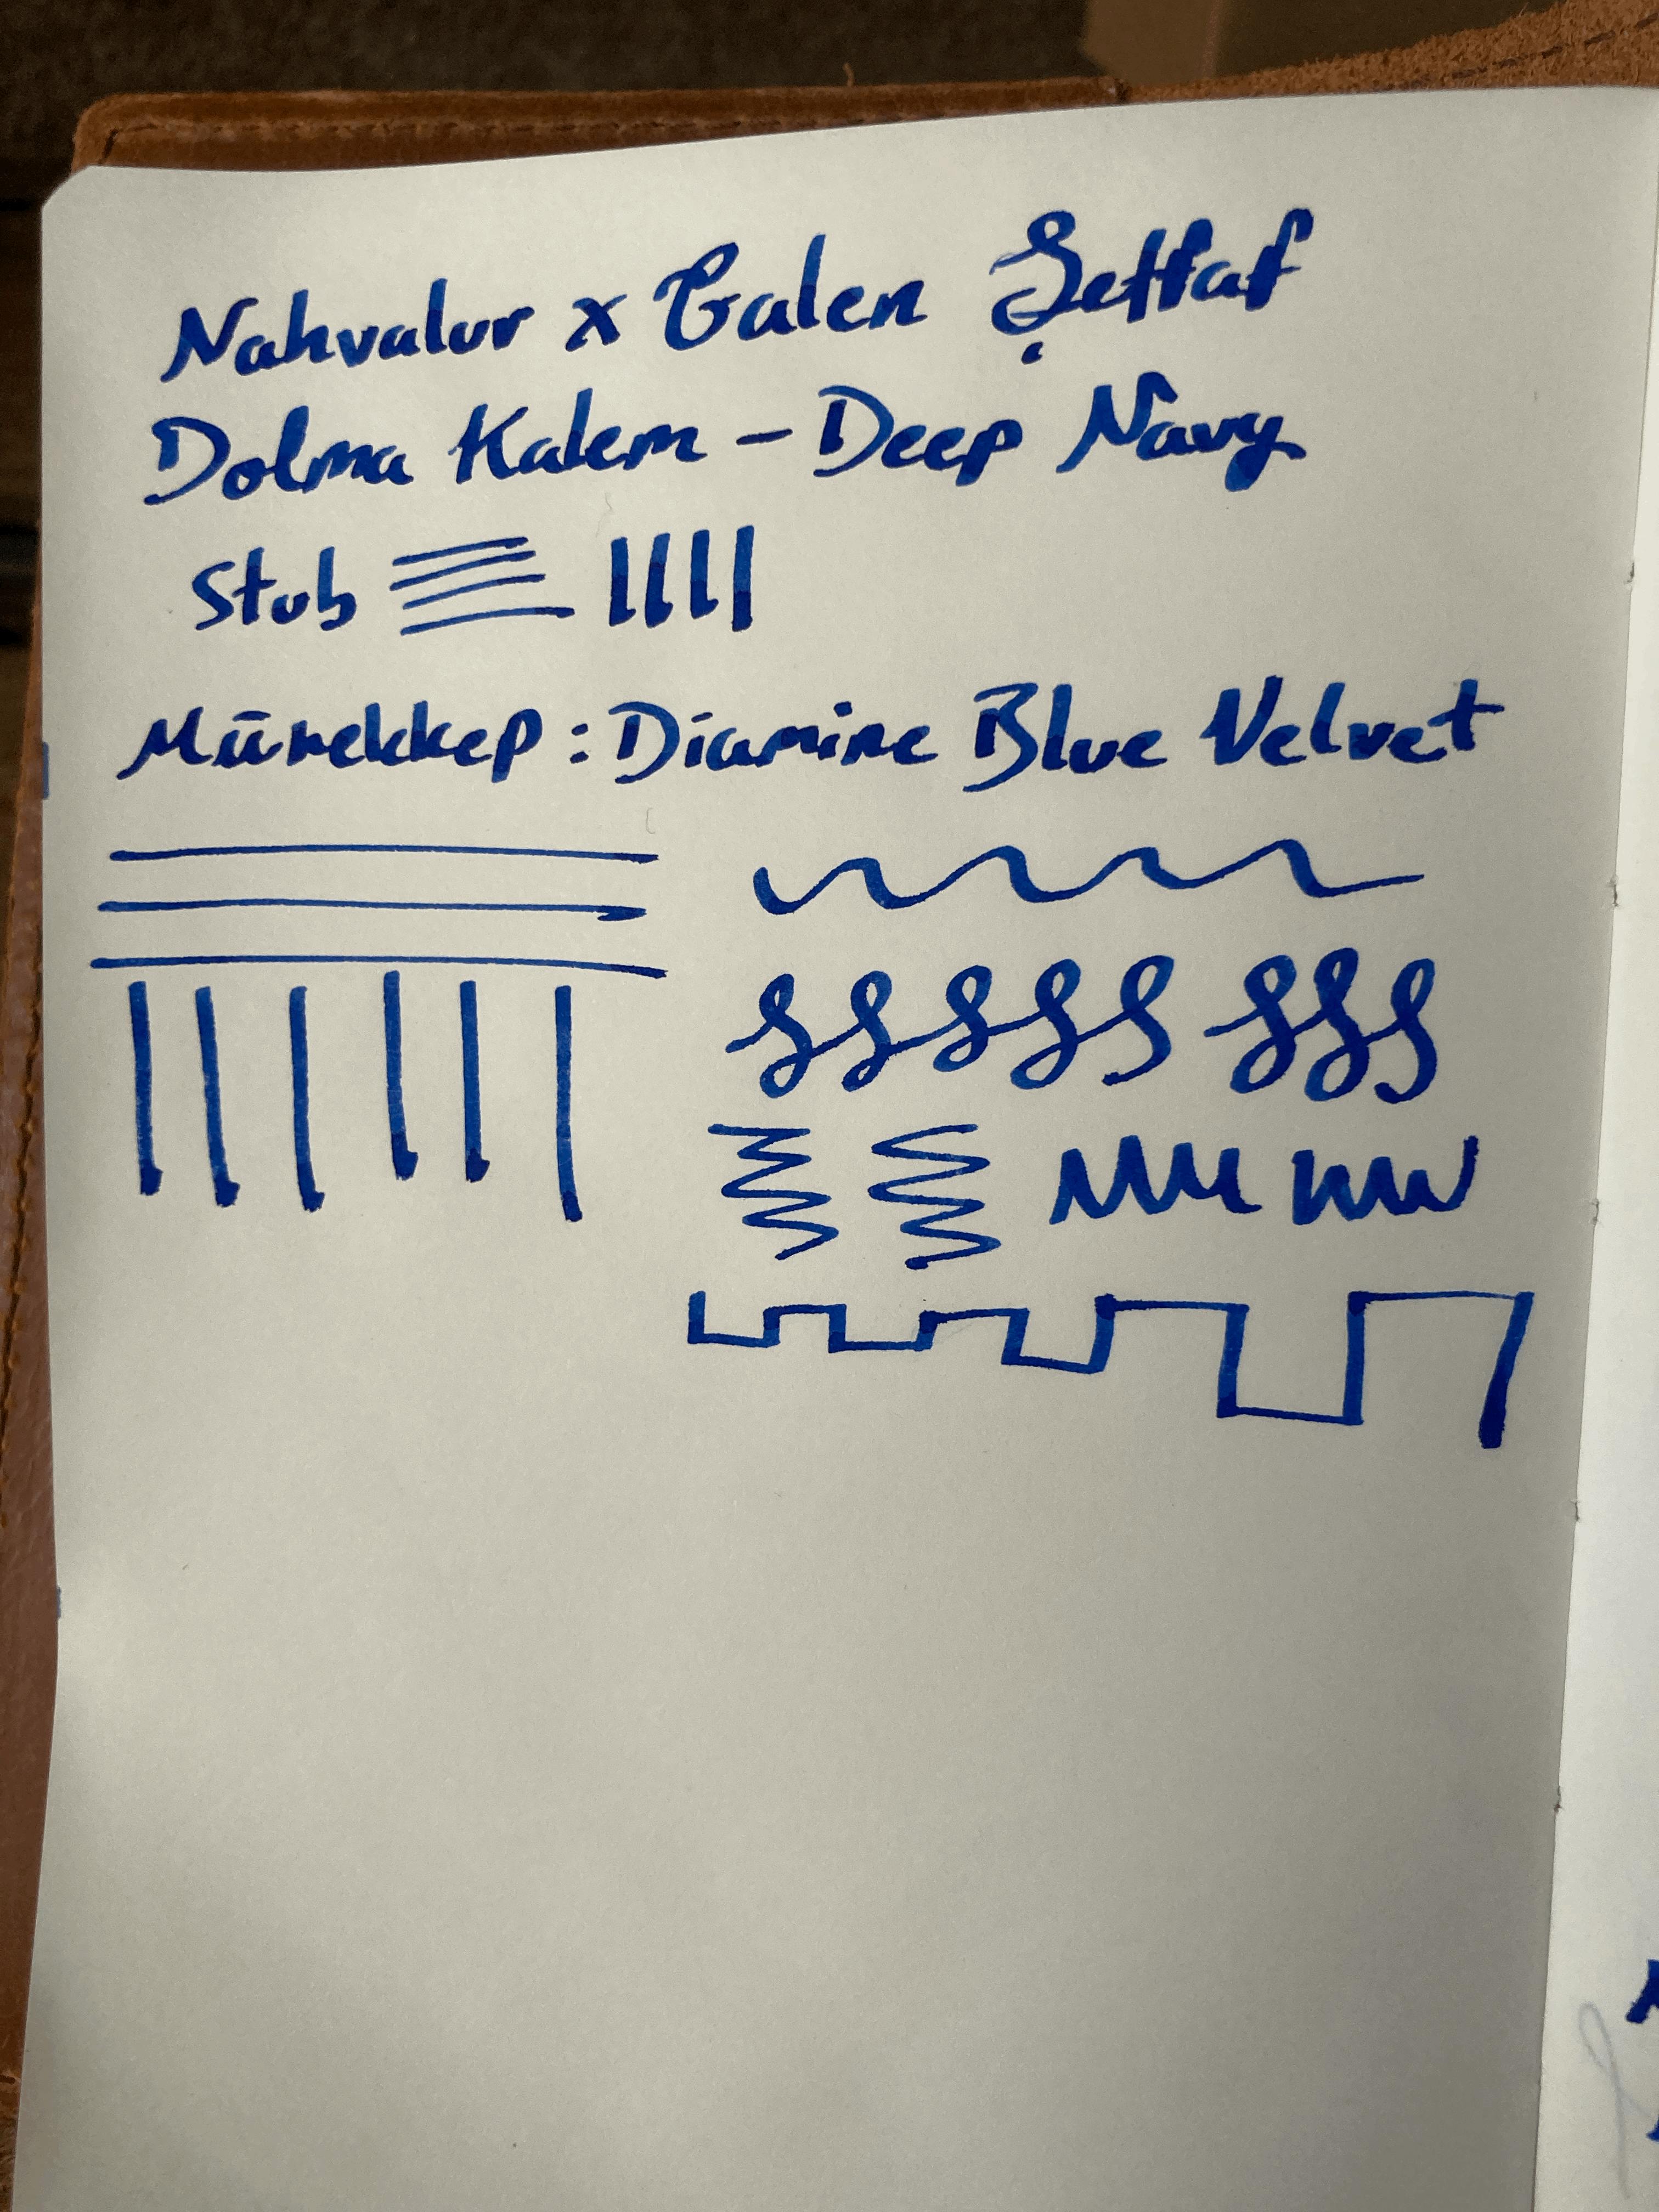 Nahvalur x Galen Şeffaf
Dolma Kalem – Deep Navy
Stub
Mürekkep : Diamine Blue Velvet